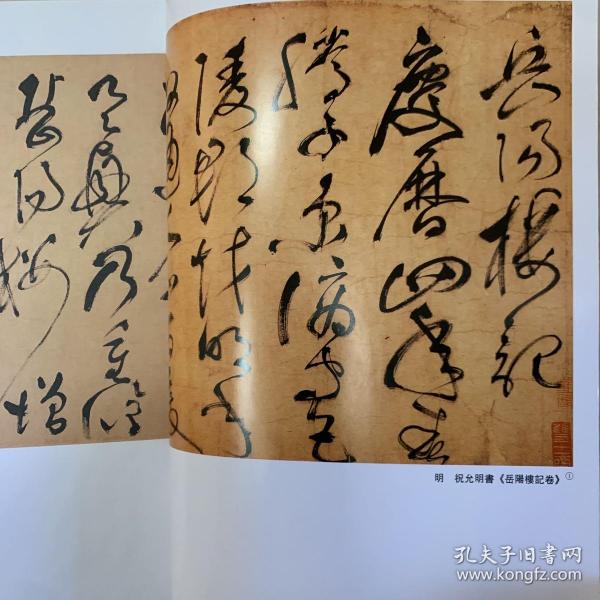 岳陽樓記
慶曆四年春
滕子京謫守巴
陵郡越明年
具興乃重脩
岳陽樓增
明 祝允明書《岳陽樓記卷》①
孔夫子旧书网
www.kongfz.com